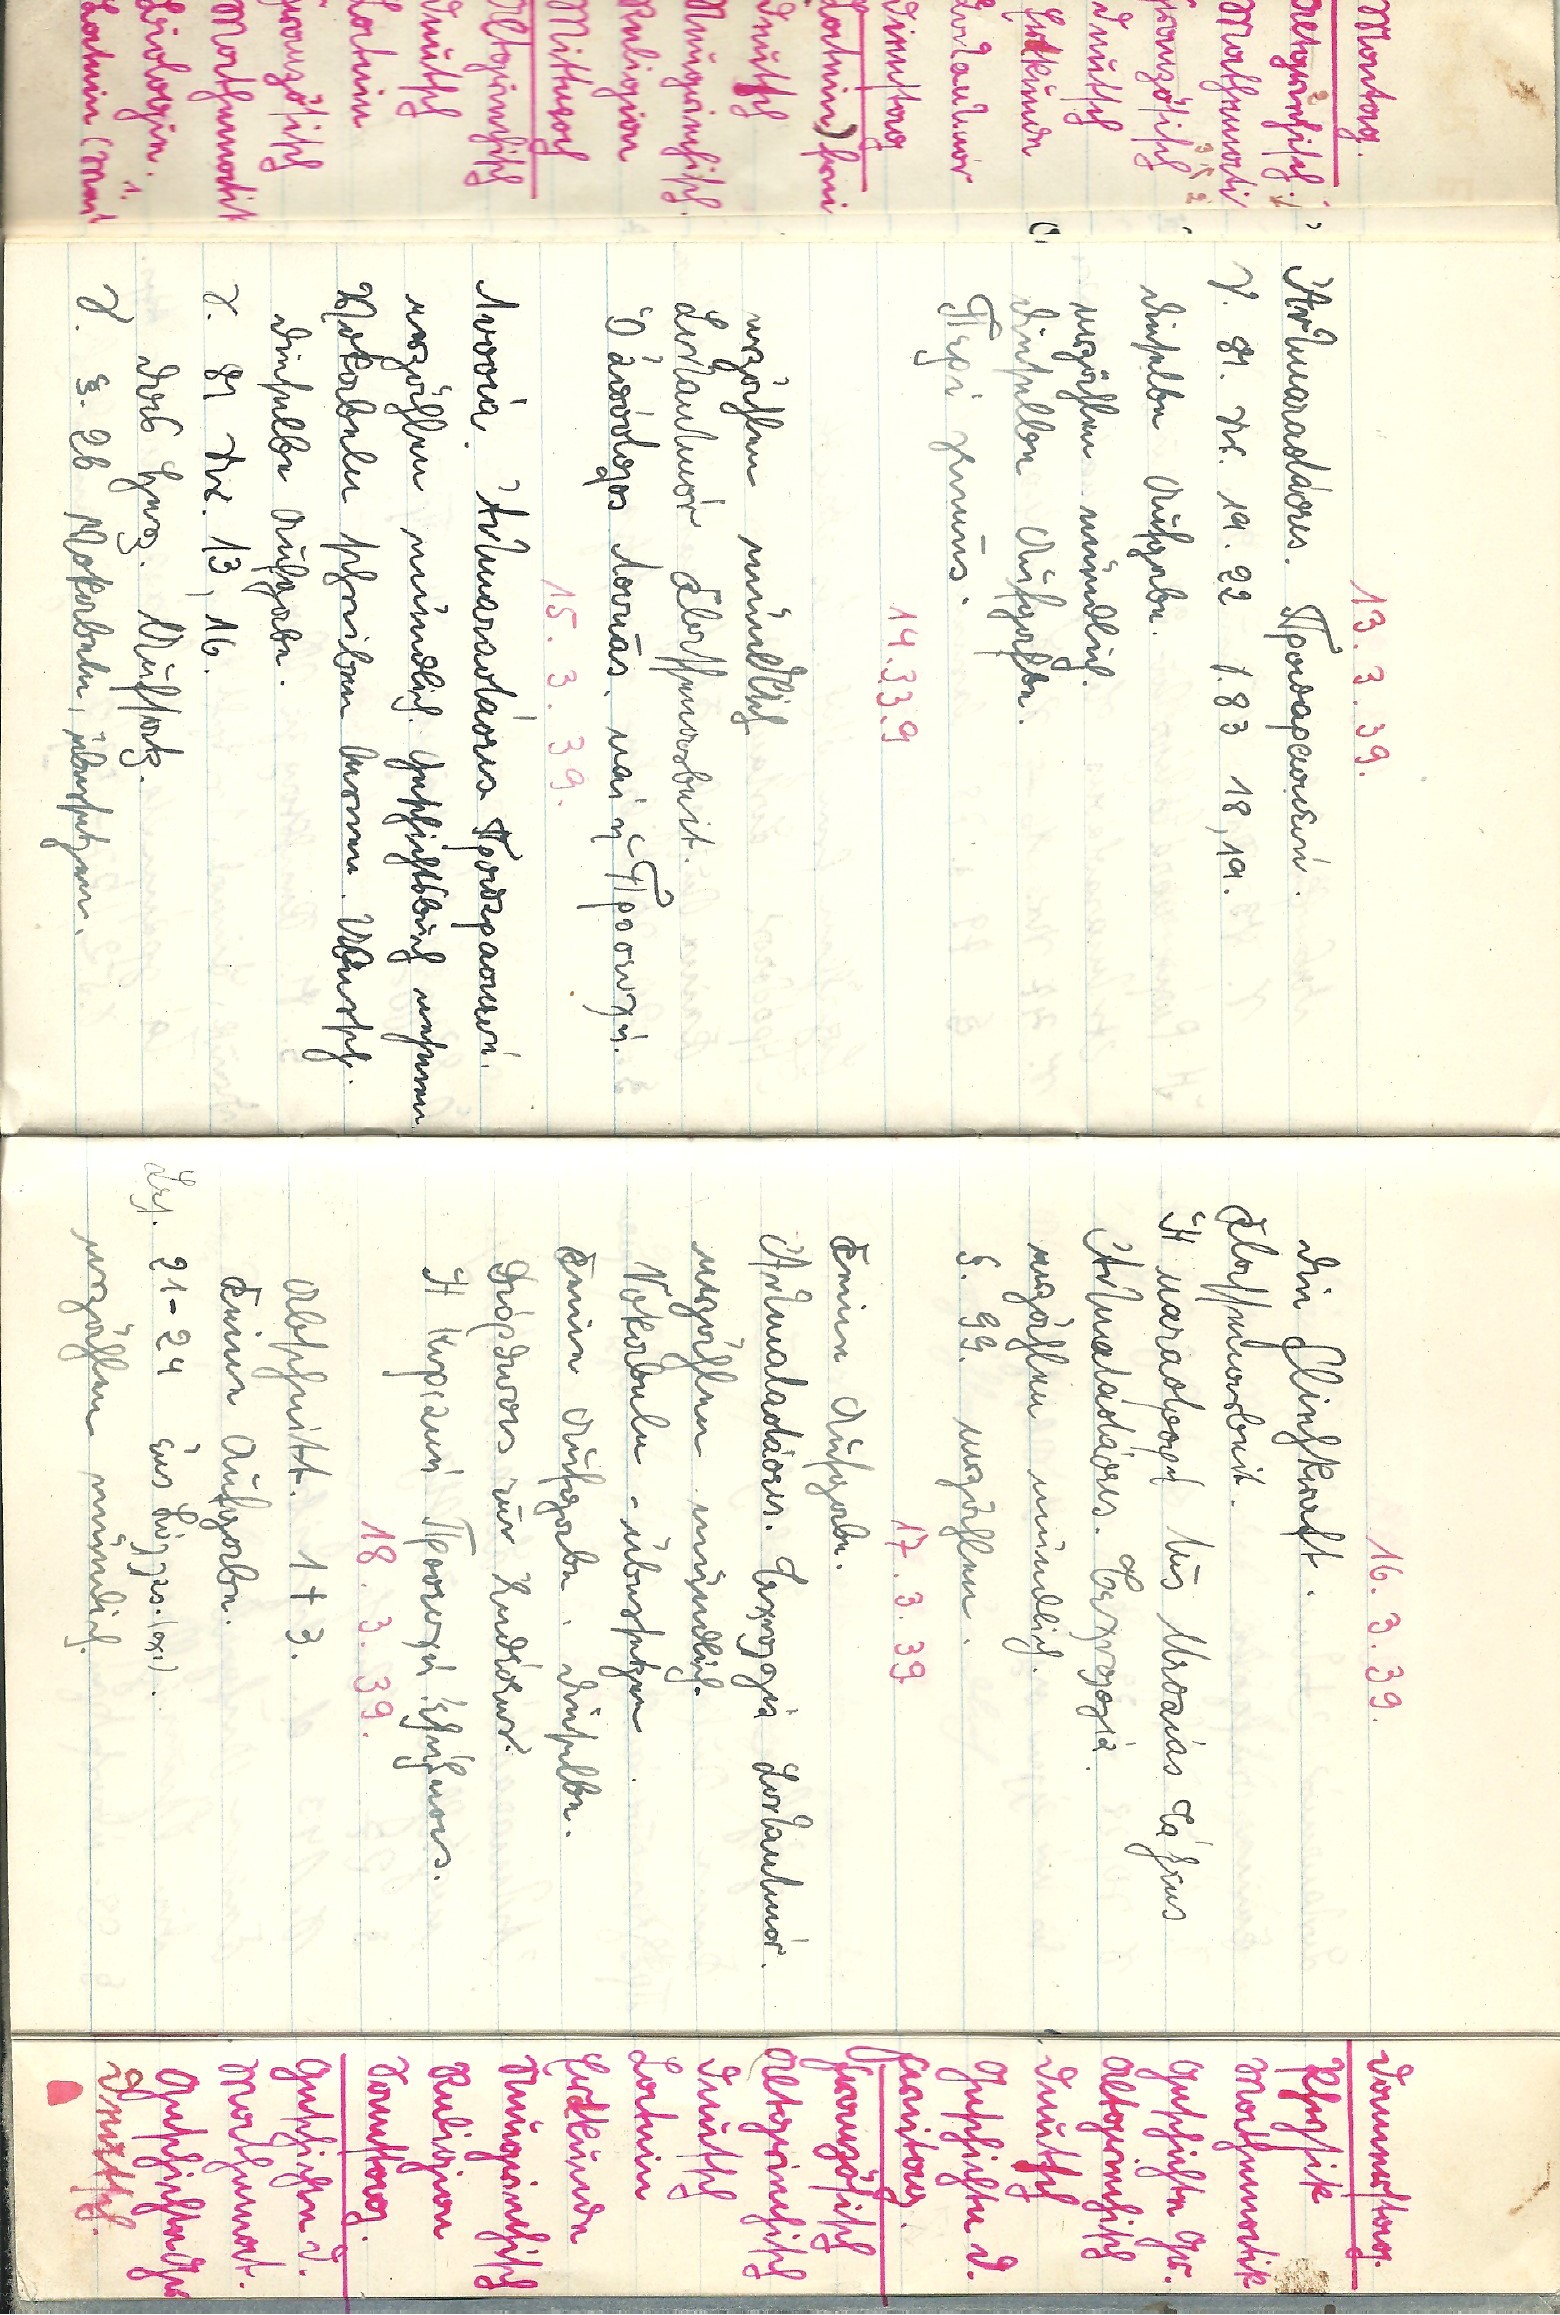 Montag.
Altgriechisch.
Mathemati
Französisch
Deutsch
Erdkunde
Συντακτικόν
Dienstag
Latein) frei
Deutsch
Neugriechisch.
Religion
Mittwoch
Altgriechisch
Deutsch
Latein
Französisch
Mathematik
Biologie.
Latein (Mat
13. 3. 39.
Ἀντικατάστασις.
S. 81. Nr. 19. 22 S. 83 18, 19.
dieselbe Aufgabe.
erzählen mündlich.
dieselbe Aufgabe.
Περὶ γενικῆς.
14.33.9
erzählen mündlich
Συντακτικόν Klassenarbeit.
Ὁ ἀπόστολος Λουκᾶς. καὶ ἡ Προσευχή.
15. 3. 39.
erzählen mündlich. Geschichtsbuch nehmen
Vokabeln schreiben lernen. Übersch.
dieselbe Aufgabe.
S. 81 Nr. 13, 16.
das Herz. Aufsatz.
S. §. 26 Vokabeln, übersetzen.
16. 3. 39.
die Fliehkraft.
Klassenarbeit.
Ἡ καταστροφὴ τῆς
Τεχνολογία.
erzählen mündlich.
§. 99. erzählen.
17. 3. 39
Keine Aufgabe.
Τεχνολογία Συντακτικόν.
erzählen mündlich.
Vokabeln - übersetzen
Keine Aufgabe. dieselbe.
Διόρθωσις τῶν Ἐκθέσεων.
Ἡ Κυριακὴ Προσευχὴ ἐξήγησις.
18. 3. 39.
Abschnitt. 1 + 3.
Keine Aufgabe.
21-24
erzählen mündlich.
Donnerstag.
Physik
Mathematik
Geschichte Gr.
Altgriechisch
Deutsch
Geschichte D.
Freitag.
Französisch
Altgriechisch
Deutsch
Latein
Erdkunde
Neugriechisch
Religion
Samstag.
Geschichte D.
Mathemat.
Geschichte Gr
Deutsch.